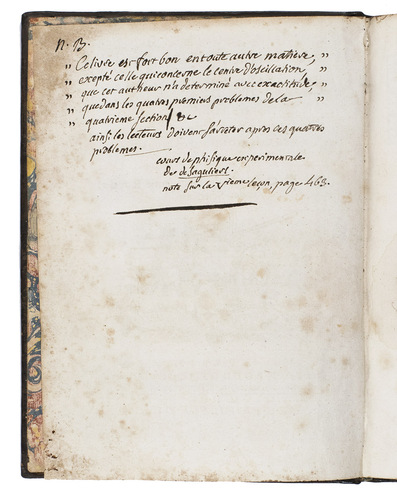 N. B.
" Ce livre est fort bon en toute autre matiere, "
" exepté celle qui conserne le centre d'oscillation, "
" que cet autheur n'a determiné avec exactitude, "
" que dans les quatres premiers problemes de la "
" quatrieme section / &c
ainsi les lecteurs doivent s'arreter apres ces quatres
problemes.
cours de phisique experimentale
de desaguliers.
note sur la Vieme leçon, page 463.